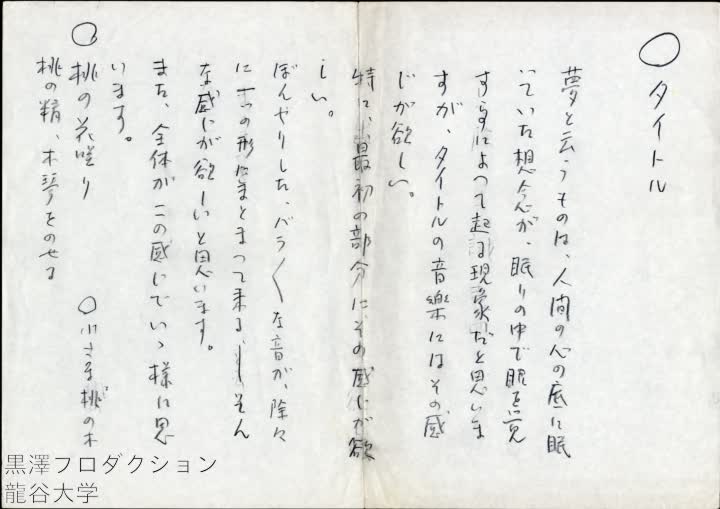 ○ タイトル
夢と云うものは、人間の心の底に眠
っていた想念が、眠りの中で眼を覚
すことによって起る現象だと思いま
すが、タイトルの音楽にはその感
じが欲しい。
特に、最初の部分にその感じが欲
しい。
ぼんやりした、バラ〱な音が、除々
に一つの形にまとまって来る、――そん
な感じが欲しいと思います。
また、全体がこの感じでいゝ様に思
います。
○ 桃の花咲り ○ 小さな桃の木
桃の精、木琴をのせる
黒澤プロダクション
龍谷大学